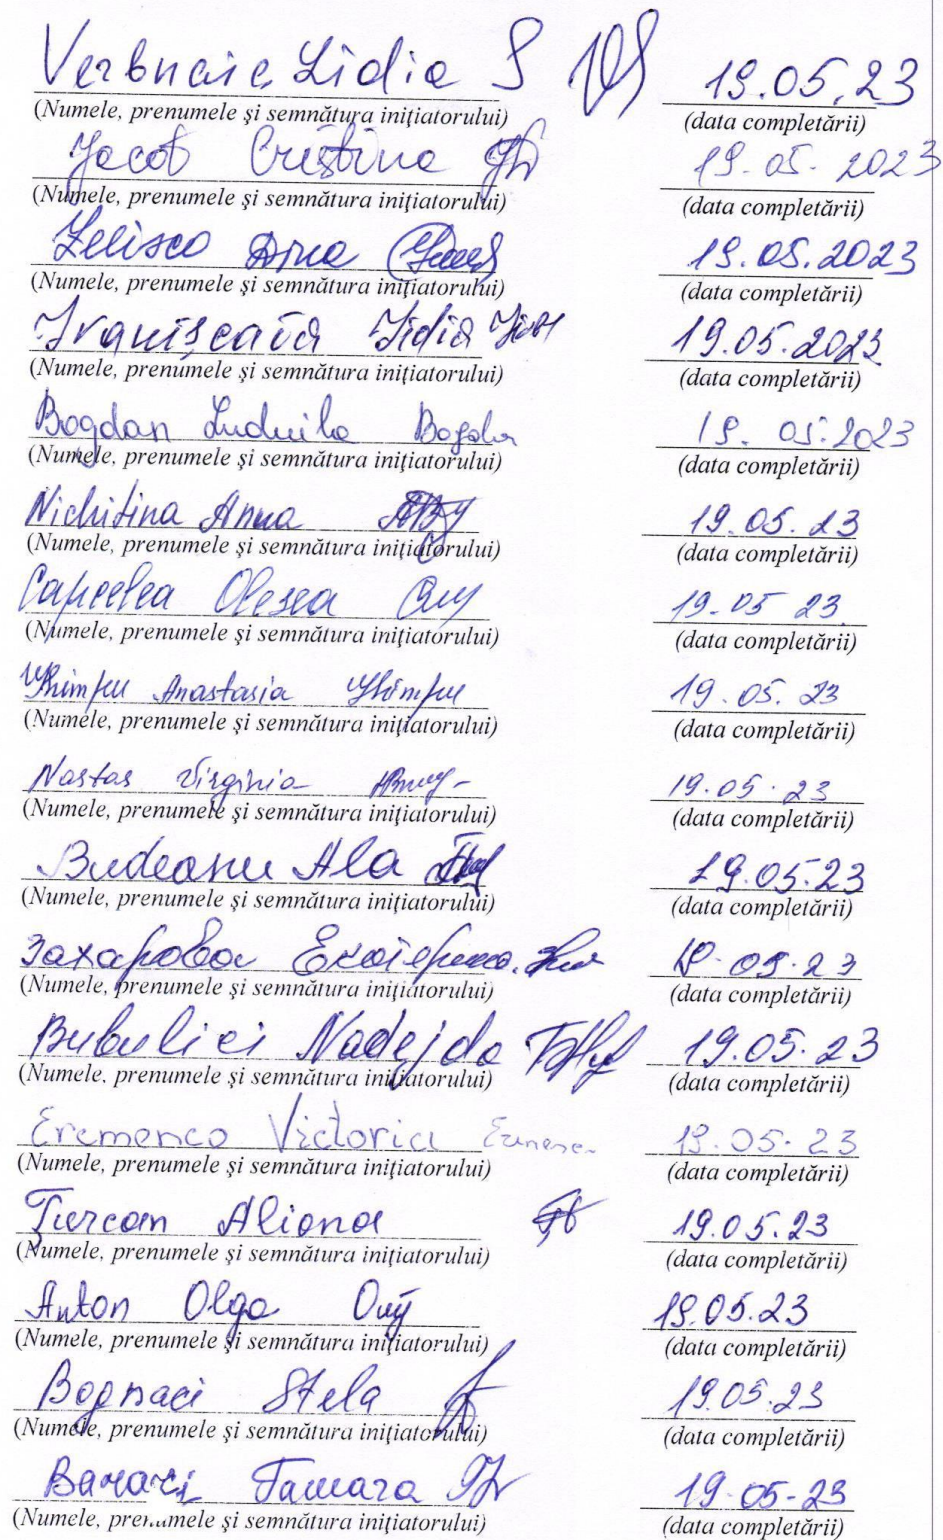 Verbncaia Lidia 19.05.23
(Numele, prenumele şi semnătura iniţiatorului) (data completării)
Iacob Cristina 19.05.2023
(Numele, prenumele şi semnătura iniţiatorului) (data completării)
Zelisco Ana 19.05.2023
(Numele, prenumele şi semnătura iniţiatorului) (data completării)
Lidia 19.05.2023
(Numele, prenumele şi semnătura iniţiatorului) (data completării)
Bogdan Ludmila Bogdan 19.05.2023
(Numele, prenumele şi semnătura iniţiatorului) (data completării)
Nichitina Anna 19.05.23
(Numele, prenumele şi semnătura iniţiatorului) (data completării)
Capcelea Olesea 19.05 23
(Numele, prenumele şi semnătura iniţiatorului) (data completării)
Ghimpu Anastasia Ghimpu 19.05.23
(Numele, prenumele şi semnătura iniţiatorului) (data completării)
Nastas Virginia 19.05.23
(Numele, prenumele şi semnătura iniţiatorului) (data completării)
Budeanu Ala 19.05.23
(Numele, prenumele şi semnătura iniţiatorului) (data completării)
Захарова Екатерина 19.05.23
(Numele, prenumele şi semnătura iniţiatorului) (data completării)
Bubulici Nadejda 19.05.23
(Numele, prenumele şi semnătura iniţiatorului) (data completării)
Eremenco Victoria 19.05.23
(Numele, prenumele şi semnătura iniţiatorului) (data completării)
Ţurcan Aliona 19.05.23
(Numele, prenumele şi semnătura iniţiatorului) (data completării)
Anton Olga 19.05.23
(Numele, prenumele şi semnătura iniţiatorului) (data completării)
Bognaci Stela 19.05.23
(Numele, prenumele şi semnătura iniţiatorului) (data completării)
Tamara 19.05-23
(Numele, prenumele şi semnătura iniţiatorului) (data completării)